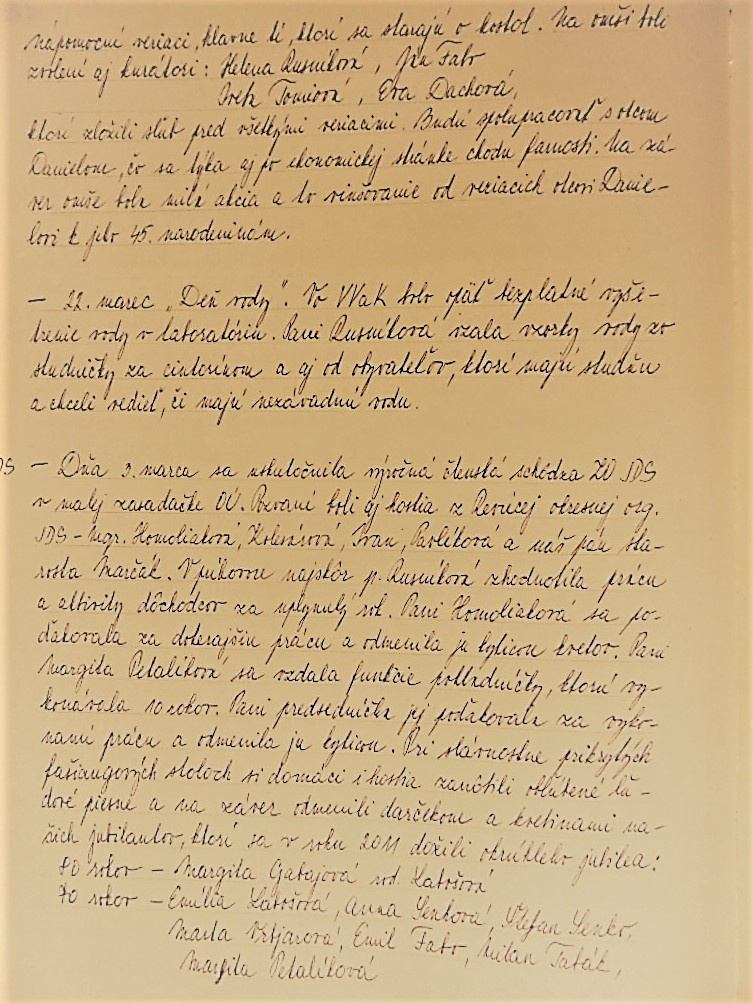 nápomocní veriaci, hlavne tí, ktorí sa starajú o kostol. Na omši boli
zvolení aj kurátori: Helena Rusnáková, Ján Fabo
Iveta Tomiová, Eva Dachová,
ktorí zložili sľub pred všetkými veriacimi. Budú spolupracovať s otcom
Danielom, čo sa týka aj po ekonomickej stránke chodu farnosti. Na zá-
ver omše bola milá akcia a to vinšovanie od veriacich otcovi Danie-
lovi k jeho 45. narodeninám.
- 22. marec „Deň vody". Vo VVaK bolo opäť bezplatné vyše-
trenie vody v laboratóriu. Pani Rusnáková vzala vzorky vody zo
studničky za cintorínom a aj od obyvateľov, ktorí majú studňu
a chceli vedieť, či majú nezávadnú vodu.
DS - Dňa 3. marca sa uskutočnila výročná členská schôdza ZO JDS
v malej zasadačke OÚ. Pozvaní boli aj hostia z Revúcej okresnej org.
JDS - Mgr. Homoliaková, Kolesárová, Ivan, Pavlíková a náš pán sta-
rosta Marčák. V príhovore najskôr p. Rusnáková zhodnotila prácu
a aktivity dôchodcov za uplynulý rok. Pani Homoliaková sa po-
ďakovala za doterajšiu prácu a odmenila ju kyticou kvetov. Pani
Margita Petalíková sa vzdala funkcie pokladníčky, ktorú vy-
konávala 10 rokov. Pani predsedníčka jej poďakovala za vyko-
nanú prácu a odmenila ju kyticou. Pri slávnostne prikrytých
fašiangových stoloch si domáci i hostia zanôtili obľúbené ľu-
dové piesne a na záver odmenili darčekom a kvetinami na-
šich jubilantov, ktorí sa v roku 2011 dožili okrúhleho jubilea:
80 rokov - Margita Gabajová rod. Latošová
70 rokov - Emília Latošová, Anna Senková, Štefan Senko,
Marta Vrtjarová, Emil Fabo, Milan Tabák,
Margita Petalíková